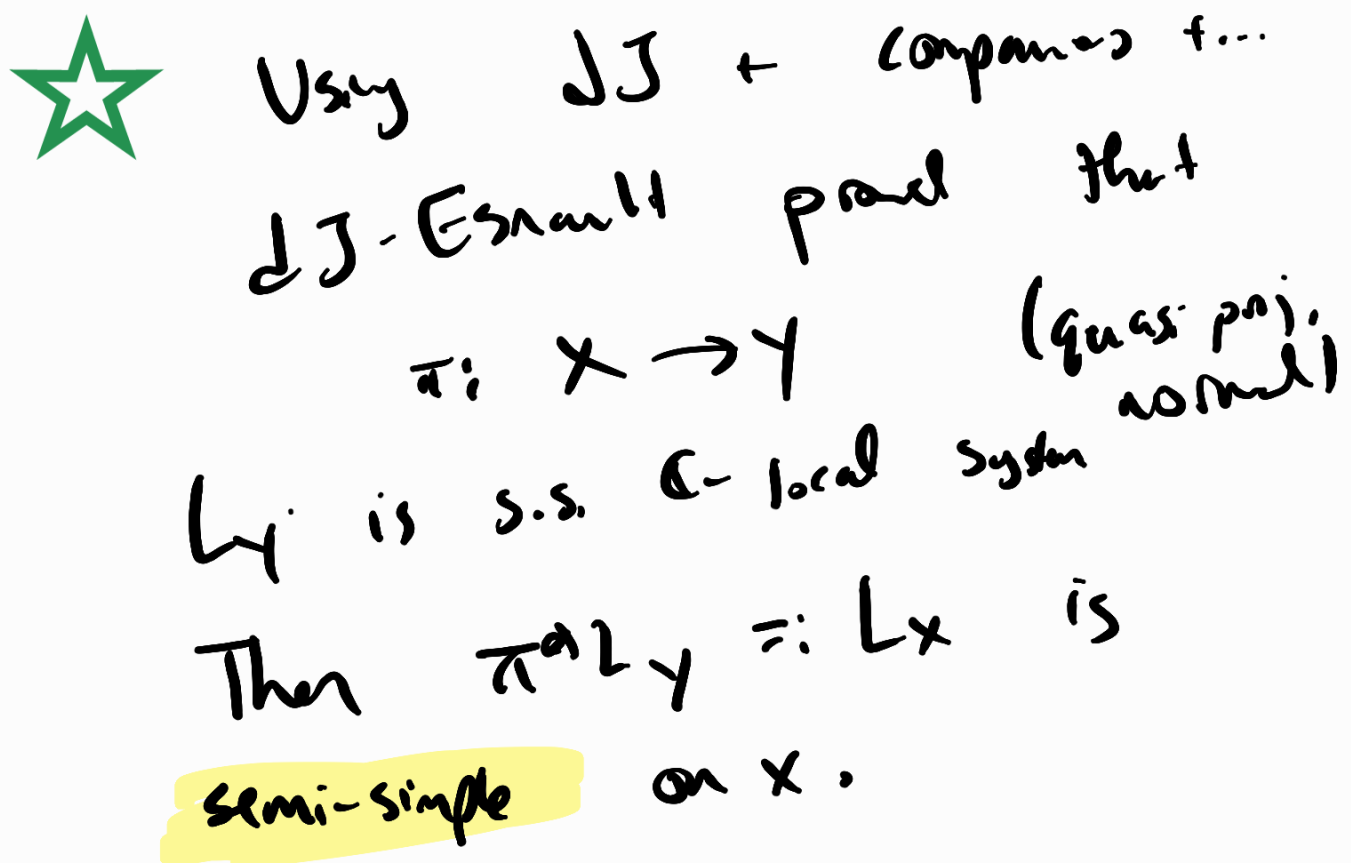 Using dJ + companions + ...
dJ-Esnault proved that
π: X → Y (quasi proj. normal)
L_Y is s.s. ℂ-local system
Then π*L_Y =: L_X is
semi-simple on X.